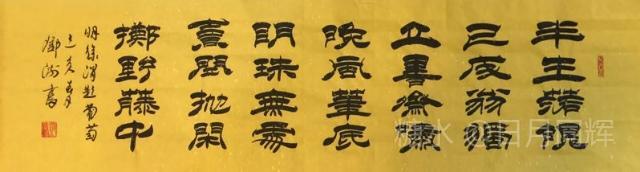 半生落魄
已成翁獨
立書齋嘯
晚風筆底
明珠無處
賣閑拋閑
擲野藤中
明徐渭題葡萄
己亥春月
書
水 @日月同辉